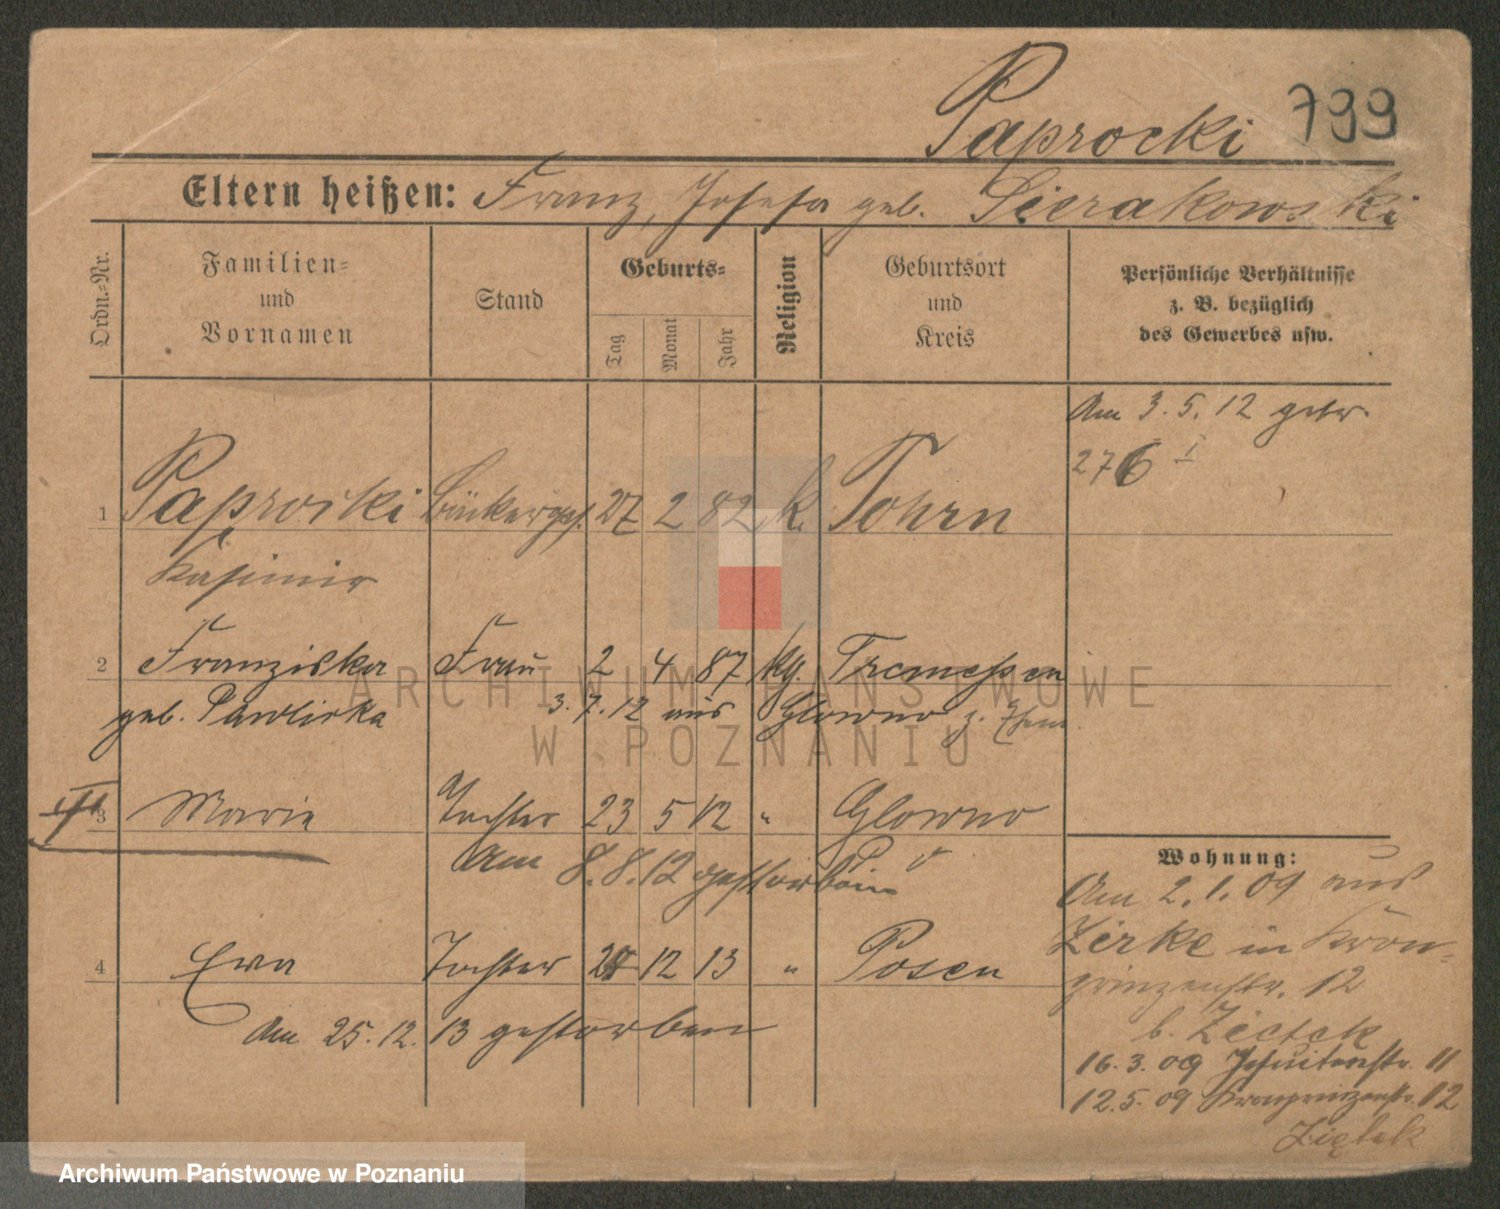 Paprocki 799
Eltern heißen: Franz, Josefa geb. Sierakowski
Ordn.-Nr.
Familien- und Vornamen
Stand
Geburts-
Tag
Monat
Jahr
Religion
Geburtsort und Kreis
Persönliche Verhältnisse z. B. bezüglich des Gewerbes usw.
Am 3.5.12 getr.
276 I
1 Paprocki Bäckerges. 27 2 82 k. Tohrn
Kasimir
2 Franziska Frau 2 4 87 kg. Tremessen
geb. Pawlicka 3.7.12 aus Glowno z.
III
3 Marie Tochter 23 5 12 " Glowno
Am 8.8.12 gestorben
4 Eva Tochter 12 13 " Posen
Am 25.12.13 gestorben
Wohnung:
Am 2.1.09 aus
Zirke in Kron-
prinzenstr. 12
b. Zietek
16.3.09 Jesuitenstr. 11
12.5.09 Kronprinzenstr. 12
Ziętek
ARCHIWUM PAŃSTWOWE
W POZNANIU
Archiwum Państwowe w Poznaniu